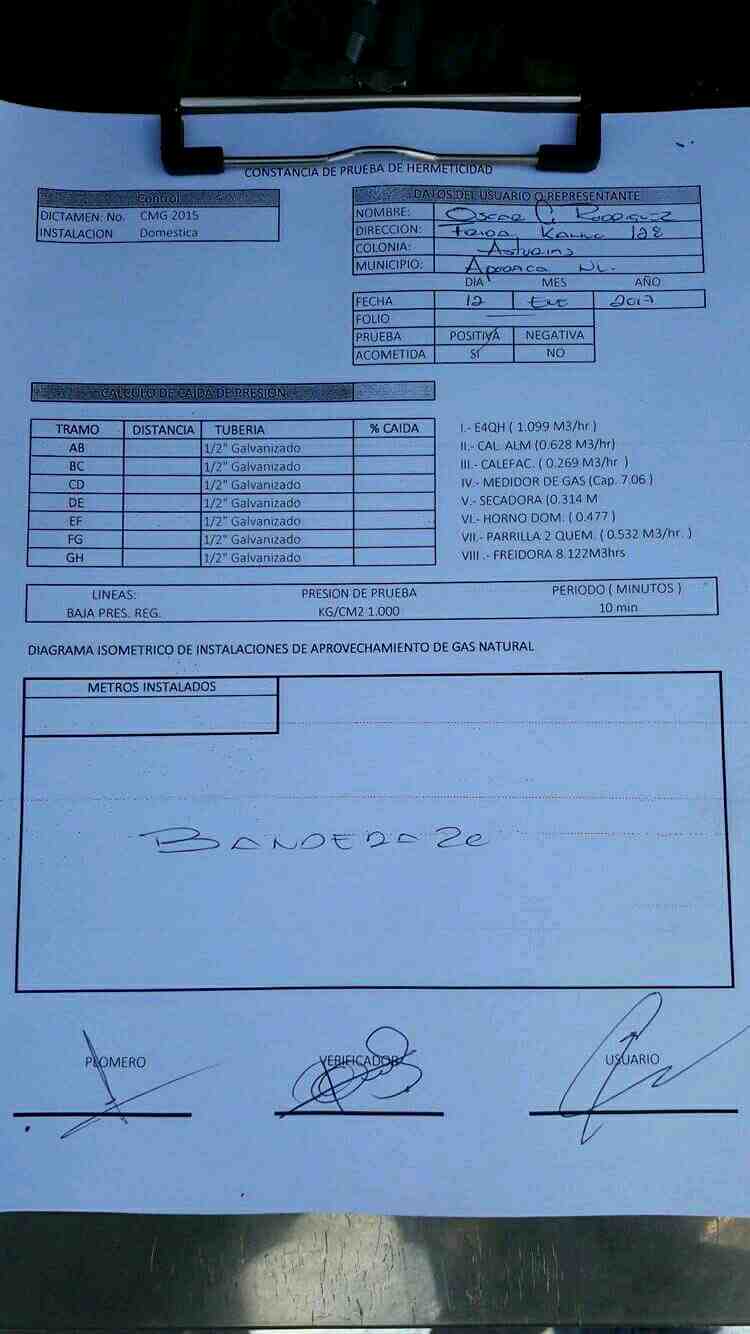 CONSTANCIA DE PRUEBA DE HERMETICIDAD
Control
DICTAMEN: No. CMG 2015
INSTALACION Domestica
DATOS DEL USUARIO O REPRESENTANTE
NOMBRE: Oscar C. Rodriguez
DIRECCION: Frida Kahlo 128
COLONIA: Asturias
MUNICIPIO: Apodaca NL.
DIA MES AÑO
FECHA 12 Ene 2017
FOLIO
PRUEBA POSITIVA NEGATIVA
ACOMETIDA SI NO
CALCULO DE CAIDA DE PRESION
TRAMO DISTANCIA TUBERIA % CAIDA
AB 1/2" Galvanizado
BC 1/2" Galvanizado
CD 1/2" Galvanizado
DE 1/2" Galvanizado
EF 1/2" Galvanizado
FG 1/2" Galvanizado
GH 1/2" Galvanizado
I.- E4QH ( 1.099 M3/hr )
II.- CAL. ALM (0.628 M3/hr)
III.- CALEFAC. ( 0.269 M3/hr )
IV.- MEDIDOR DE GAS (Cap. 7.06 )
V.- SECADORA (0.314 M
VI.- HORNO DOM. ( 0.477 )
VII.- PARRILLA 2 QUEM. ( 0.532 M3/hr. )
VIII .- FREIDORA 8.122M3hrs
LINEAS: PRESION DE PRUEBA PERIODO ( MINUTOS )
BAJA PRES. REG. KG/CM2 1.000 10 min
DIAGRAMA ISOMETRICO DE INSTALACIONES DE APROVECHAMIENTO DE GAS NATURAL
METROS INSTALADOS
PLOMERO VERIFICADOR USUARIO